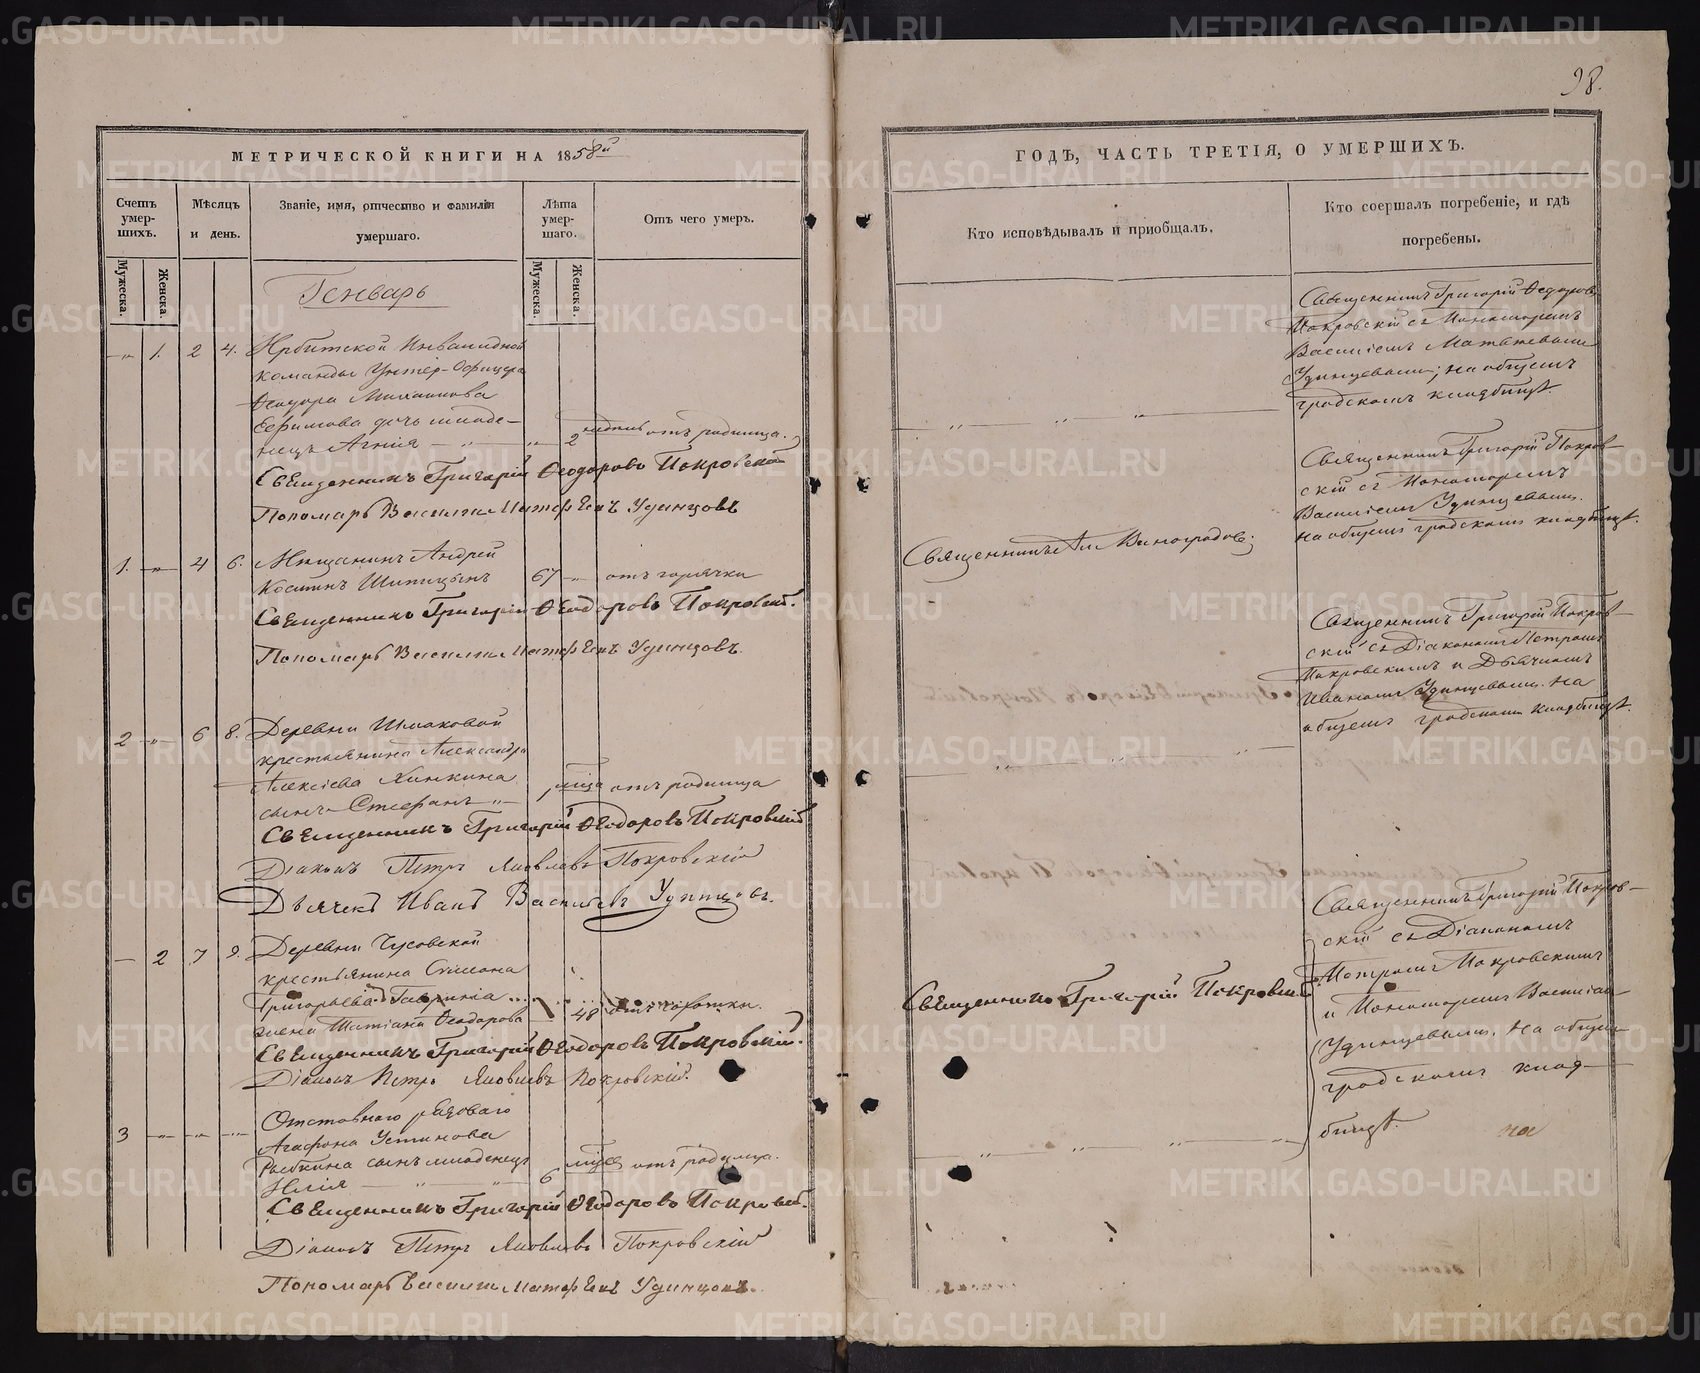 98.
МЕТРИЧЕСКОЙ КНИГИ НА 1858й
Счетъ умер-шихъ.
Мужеска.
Женска.
Мѣсяцъ и день.
Званіе, имя, отчество и фамилія умершаго.
Лѣта умер-шаго.
Мужеска.
Женска.
Отъ чего умеръ.
Генварь
1. 2 4. Ирбитской Инвалидной
команды Унтер-Офицера
Ѳеодора
Ефимова дочь младе-
нецъ Агнія 2 отъ родимца.
Священникъ Григорій Ѳеодоровъ Покровскій
Пономарь Василій Матфѣевъ Удинцовъ
1. 4 6. Мѣщанинъ Андрей
Костинъ Шипицынъ 67 отъ горячки
Священникъ Григорій Ѳеодоровъ Покровскій.
Пономарь Василій Матфѣевъ Удинцовъ.
2 6 8. Деревни Шмаковой
крестьянина Александра
Алексіева
сынъ Стефанъ отъ родимца
Священникъ Григорій Ѳеодоровъ Покровскій
Діаконъ Петръ Яковлевъ Покровскій
Дьячекъ Иванъ Васильевъ Удинцовъ.
2 7 9. Деревни Чусовской
крестьянина Симеона
Григорьева Гаврина
жена Татіана Ѳеодорова 48 отъ чахотки.
Священникъ Григорій Ѳеодоровъ Покровскій.
Діаконъ Петръ Яковлевъ Покровскій.
3 Отставнаго рядоваго
Агафона Устинова
сынъ младенецъ
Илія 6 отъ родимца.
Священникъ Григорій Ѳеодоровъ Покровскій.
Діаконъ Петръ Яковлевъ Покровскій
Пономарь Василій Матфѣевъ Удинцовъ.
ГОДѢ, ЧАСТЬ ТРЕТІЯ, О УМЕРШИХЪ.
Кто исповѣдывалъ и приобщалъ.
Кто соершалъ погребеніе, и гдѣ погребены.
Священникъ Григорій Ѳеодоровъ
Покровскій съ Пономаремъ
Василіемъ Матвѣевымъ
Удинцевымъ; на общемъ
градскомъ кладбищѣ.
Священникъ Виноградовъ.
Священникъ Григорій Покров-
скій съ Пономаремъ
Василіемъ Удинцевымъ.
на общемъ градскомъ кладбищѣ.
Священникъ Григорій Покров-
скій съ Діакономъ Петромъ
Покровскимъ и Дьячкомъ
Иваномъ Удинцевымъ. На
общемъ градскомъ кладбищѣ.
Священникъ Григорій Покровскій
Священникъ Григорій Покров-
скій съ Діакономъ
Петромъ Покровскимъ
и Пономаремъ Василіемъ
Удинцевымъ. На общемъ
градскомъ клад-
бищѣ.
на
METRIKI.GASO-URAL.RU